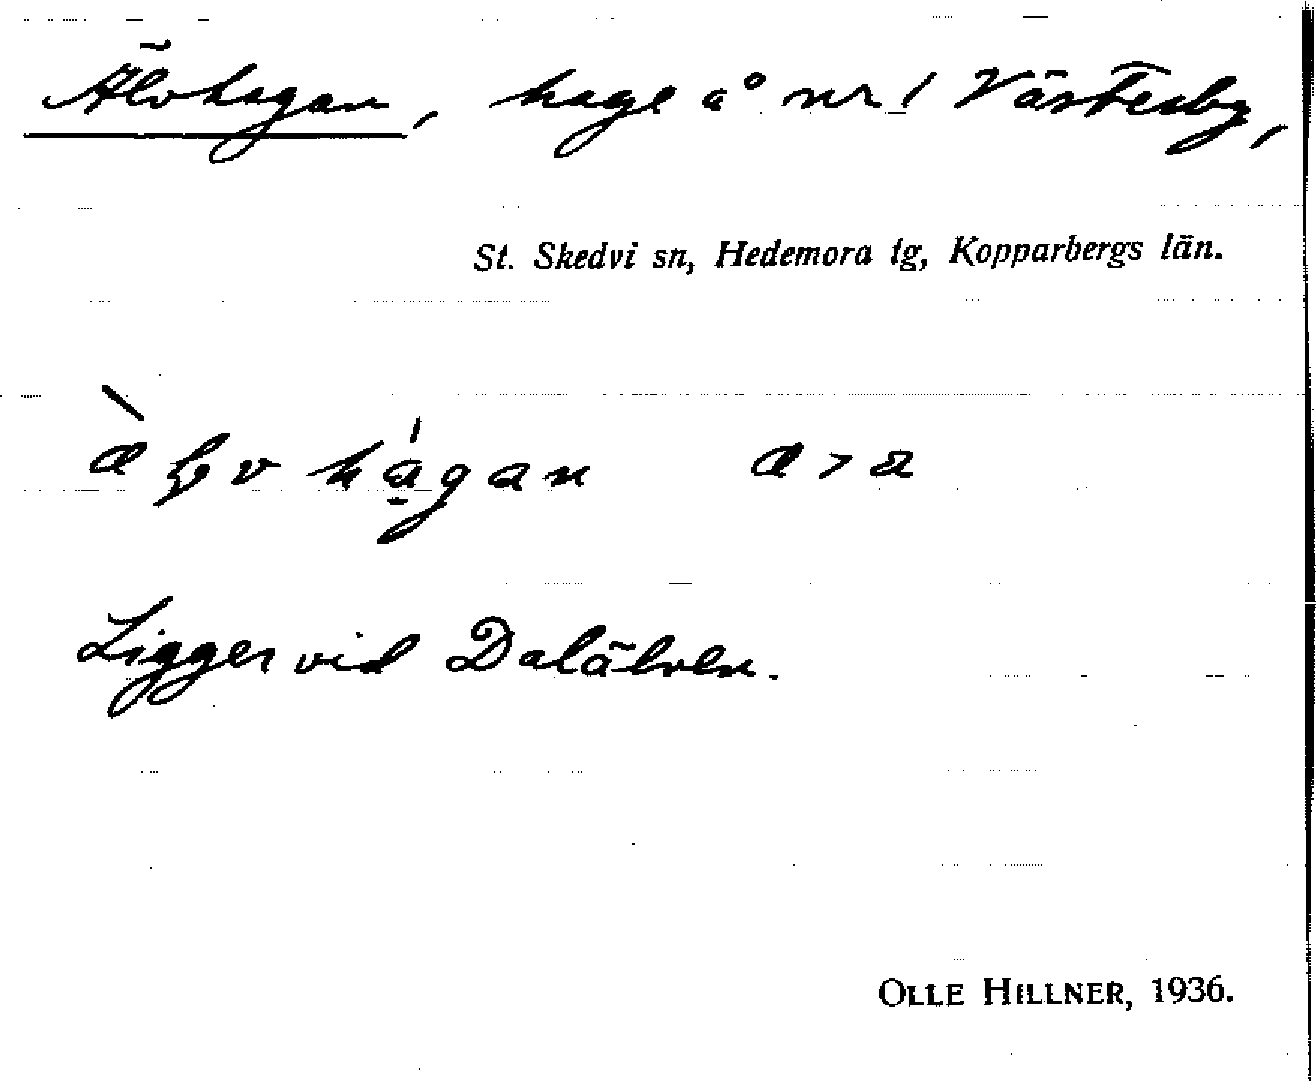 Älvhagan, hage å nr 1 Västerby,
St. Skedvi sn, Hedemora tg, Kopparbergs län.
Ligger vid Dalälven.
OLLE HILLNER, 1936.